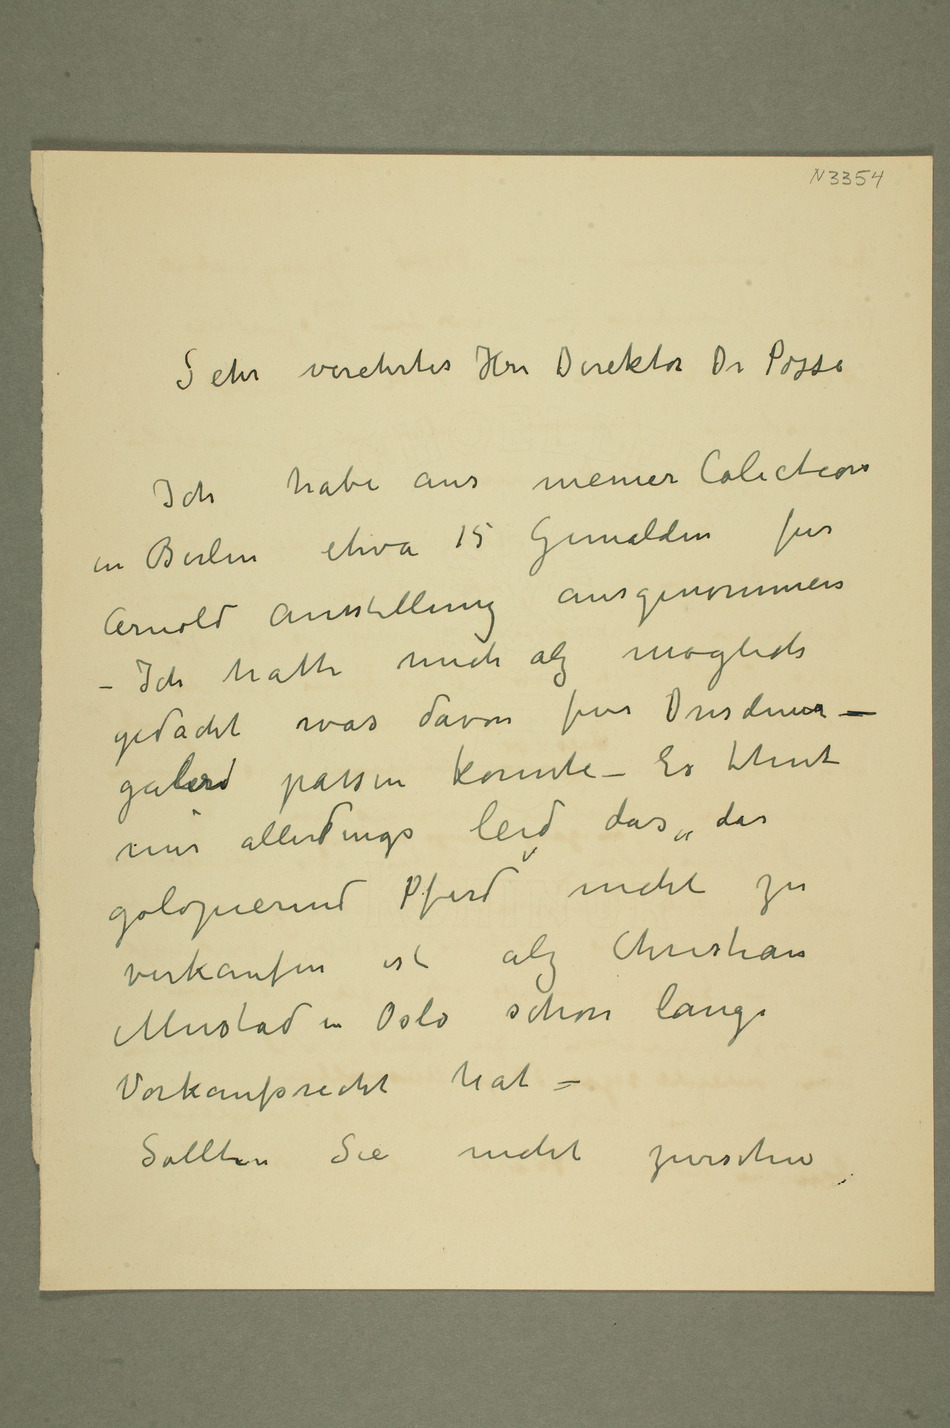 N3354
Sehr verehrter Herr Direktor Dr Posse
Ich habe aus meiner Colection
in Berlin etwa 15 Gemälden für
Arnold Ausstellung ausgenommen
– Ich hatte mich alz möglich
gedacht was davon fur Dresdener –
galerd passen konnte – Es thut
mir allerdings leid das „das
golopierend Pferd" nicht zu
verkaufen ist alz Christian
Mustad in Oslo schon lange
Vorkaufsrecht hat –
Sollten Sie nicht zwischen